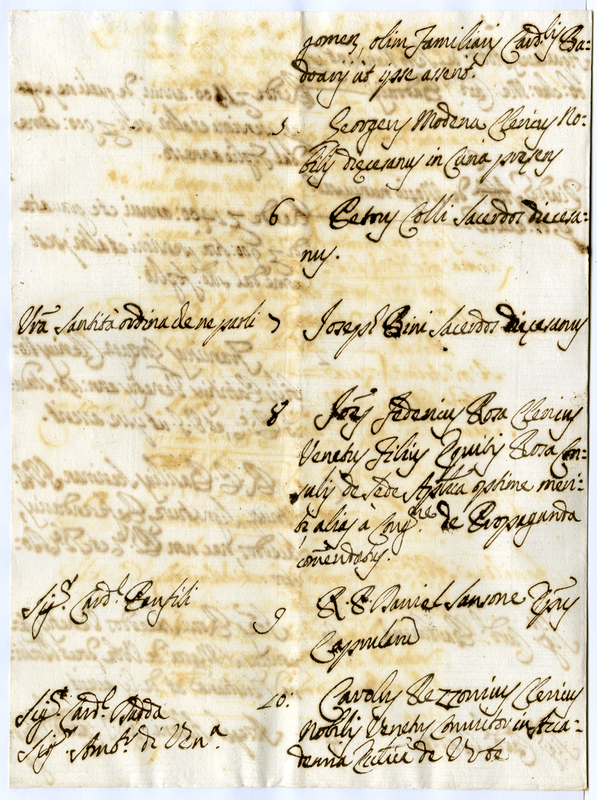 gomen, olim Familiaris Card.lis Ba=
doarij ut ipse asserit.
5 Georgius Modena Clericus No=
bilis diœcesanus in Curia præsens
6 Petrus Colli Sacerdos diœcesa=
nus.
Vrã Santità ordina che ne parli 7 Joseph Bini Sacerdos diœcesanus
8 Joẽs Federicus Rosa Clericus
Venetus Filius Equitis Rosa Con=
sulis de Sede Aplicã optime meri=
ti alias à Cong.ne de Propaganda
com̃endatus.
Sig.r Card.l Panfili 9 R. P. Daniel Sansone
Capuland
Sig.r Card.l Badda
Sig.r Amb.r di Ven.a
10. Carolus Rezzonicus Clericus
Nobilis Venetus convictor in Aca=
demia de Urbe